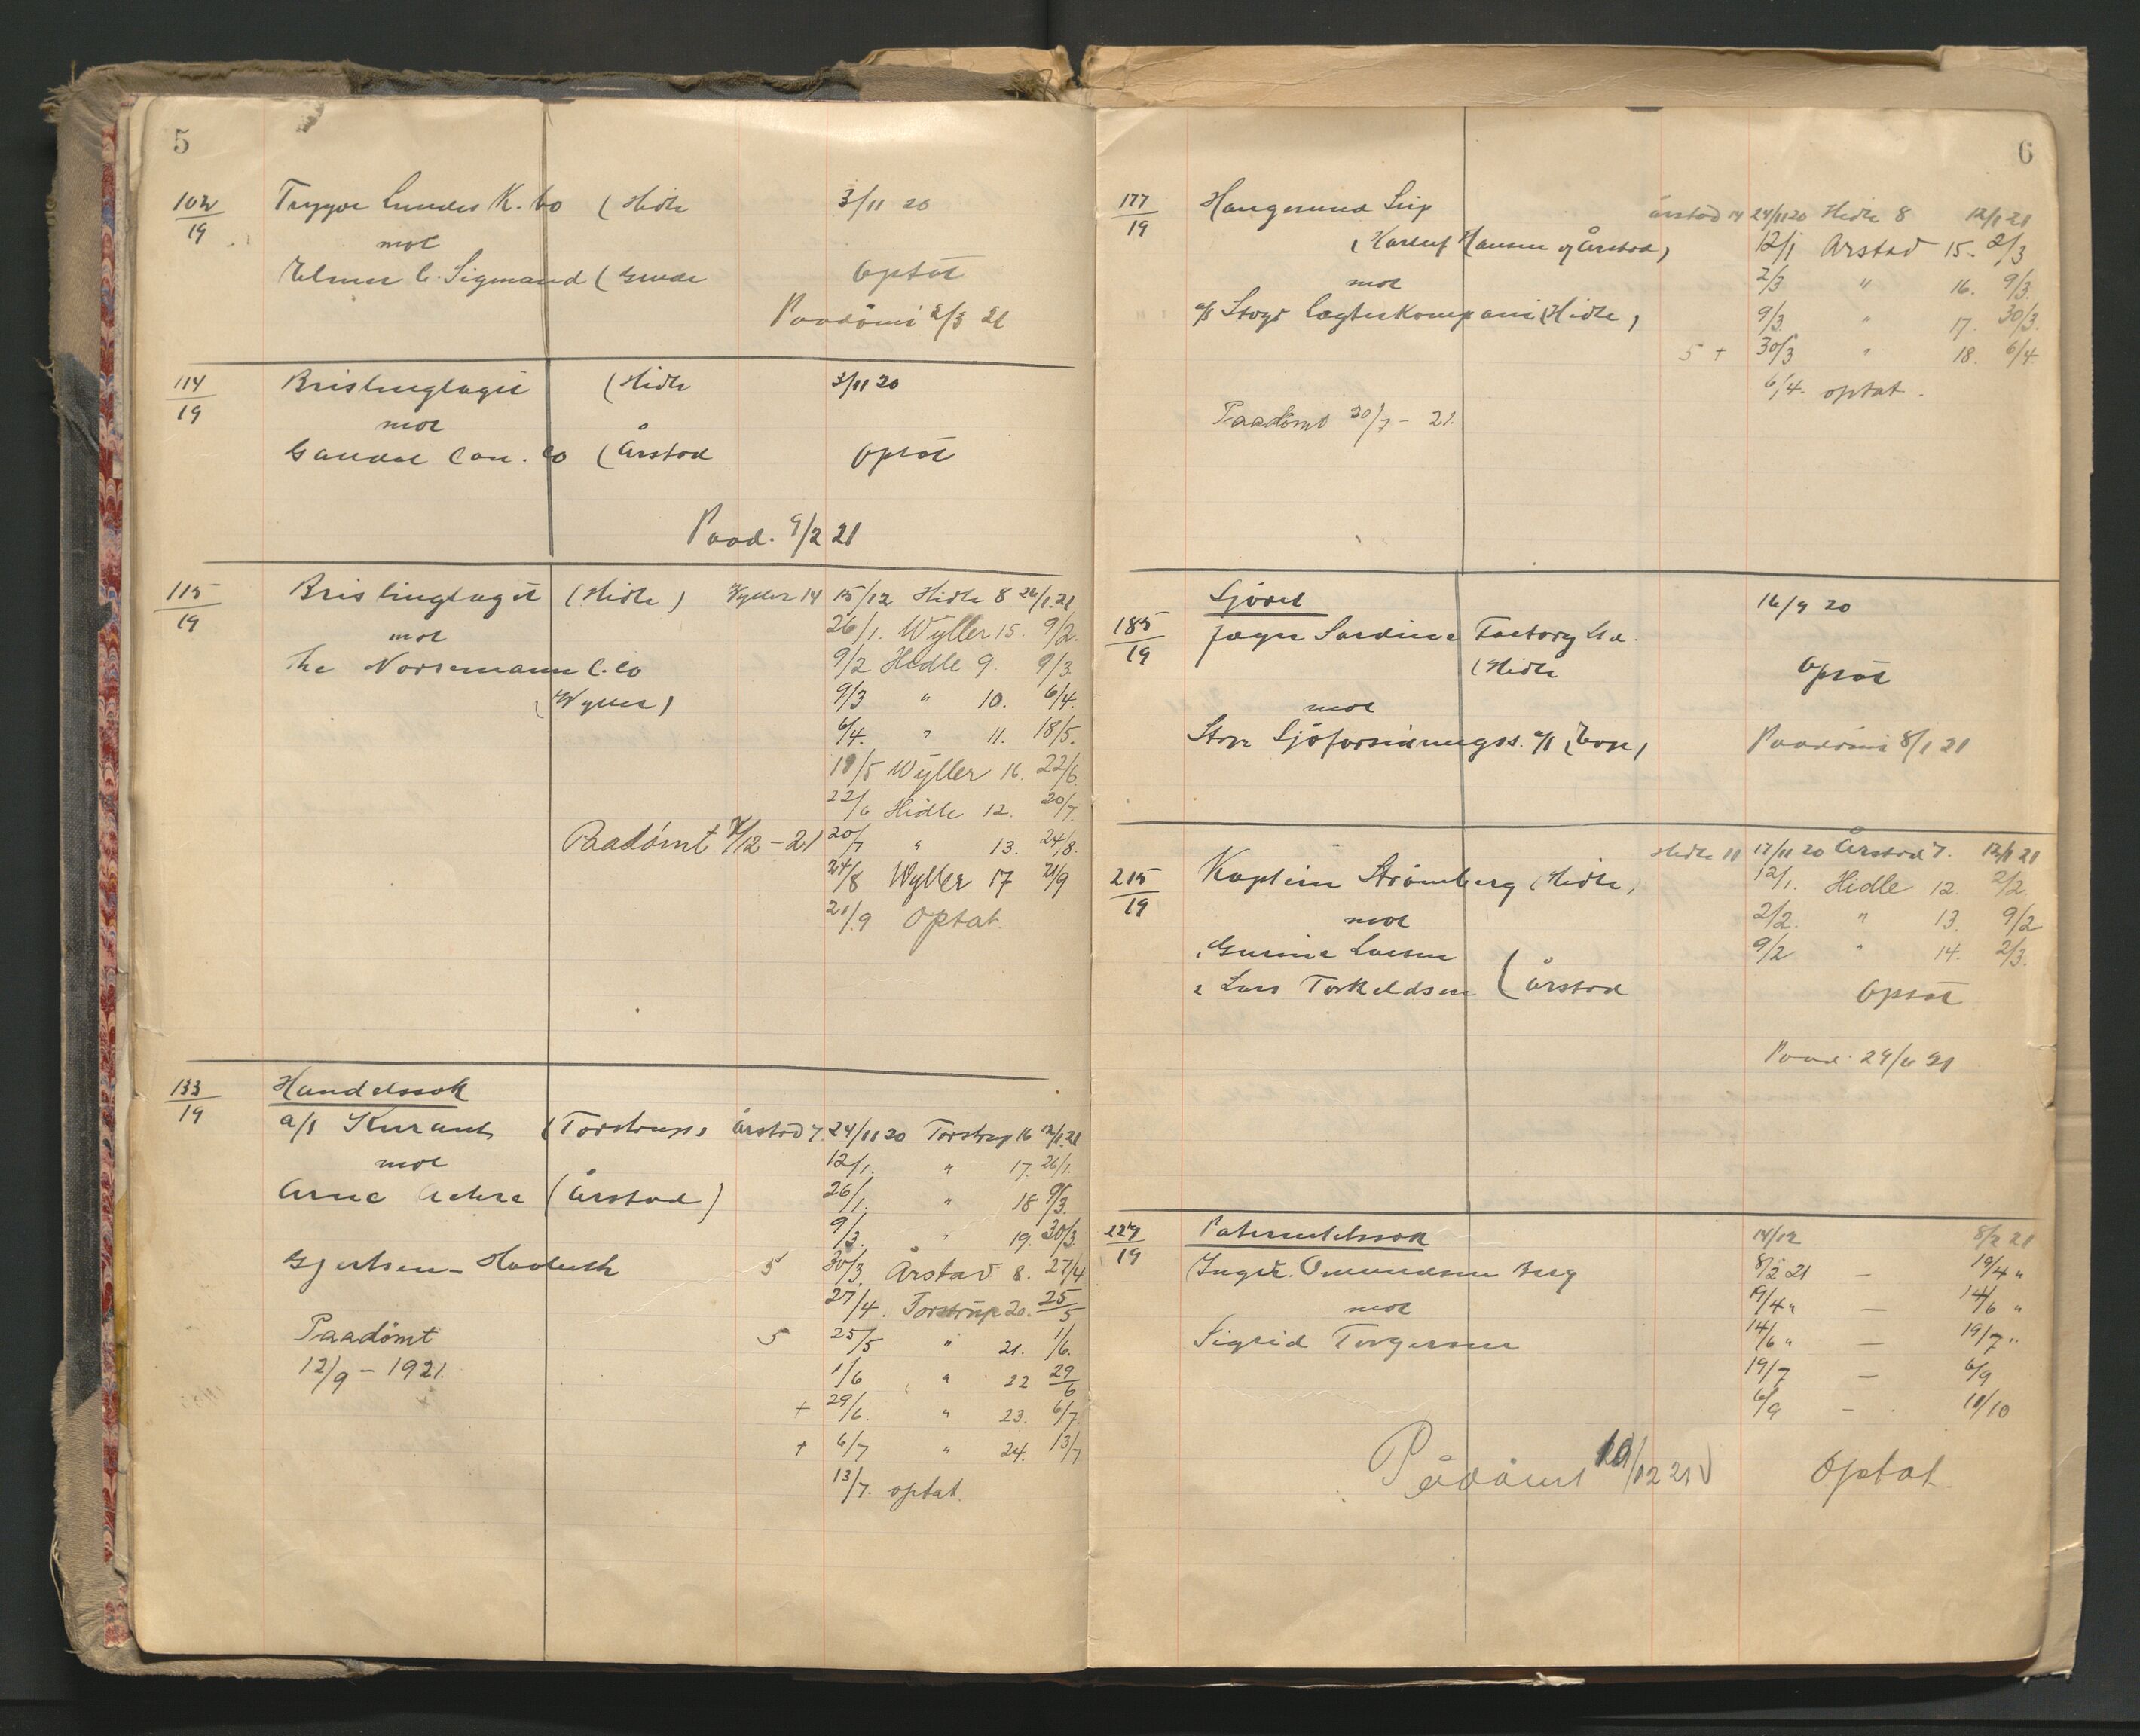 5
102/19 Trygve Lundes K. Co (Hidle 3/11 20
mot
Elmer C. Sigmand (Grude Optat
Paadömt 2/3 21
114/19 Brislinglaget (Hidle 3/11 20
mot
Gandal Can. Co (Årstad Optat
Paad. 9/2 21
115/19 Brislinglaget (Hidle) Wyller 14 15/12 Hidle 8 26/1.21
mot 26/1. Wyller 15. 9/2.
The Norsemann C. Co 9/2 Hidle 9. 9/3.
(Wyller) 9/3 " 10. 6/4.
6/4. " 11. 18/5.
18/5 Wyller 16. 22/6.
22/6 Hidle 12. 20/7.
Paadømt /12 - 21 20/7 " 13. 24/8.
24/8 Wyller 17 21/9
21/9 Optat.
133/19 Handelssak
a/s Kurant (Torstrup) Årstad 7. 24/11 20 Torstrup 16 12/1.21
mot 12/1. " 17. 26/1.
Arne Aakre (Årstad) 26/1. " 18 9/3.
9/3. " 19. 30/3.
Gjertsen - 5 30/3. Årstad 8. 27/4
27/4. Torstrup 20. 25/5
Paadömt 5 25/5 " 21. 1/6.
12/9 - 1921. 1/6 " 22 29/6
+ 29/6. " 23. 6/7.
+ 6/7 " 24. 13/7
13/7. optat.
6
177/19 Haugesund Slip Årstad 14 24/11 20 Hidle 8 12/1 21
(Karluf Hansen og Årstad) 12/1 Årstad 15. 2/3
mot 2/3 " 16. 9/3.
a/s Stogs Lægterkompani (Hidle) 9/3. " 17. 30/3.
5 + 30/3 " 18. 6/4.
6/4. optat.
Paadömt 30/7 - 21.
Sjöret 16/9 20
185/19 Jæger Sardine Factory Ltd.
(Hidle Optat
mot
Store Sjöforsikringss. a/s Paadömt 8/1 21
Hidle 11 17/11 20 Årstad 7. 12/1 21
215/19 Kaptein Strömberg (Hidle) 12/1. Hidle 12. 2/2.
mot 2/2. " 13. 9/2
1 Gurine Larsen 9/2 " 14. 2/3.
2 Lars Torkeldsen (Årstad Optat
Paad. 29/6 21
229/19 Paternitetssak 14/12 8/2 21
Inger Omundsen Berg 8/2 21 — 19/4 "
mot 19/4 " — 14/6 "
Sigrid Torgersen 14/6 " — 19/7 "
19/7 — 6/9
6/9 — 11/10
Pådömt 19/12 21 Optat.